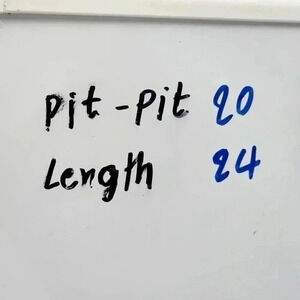 Pit - Pit 20
Length 24